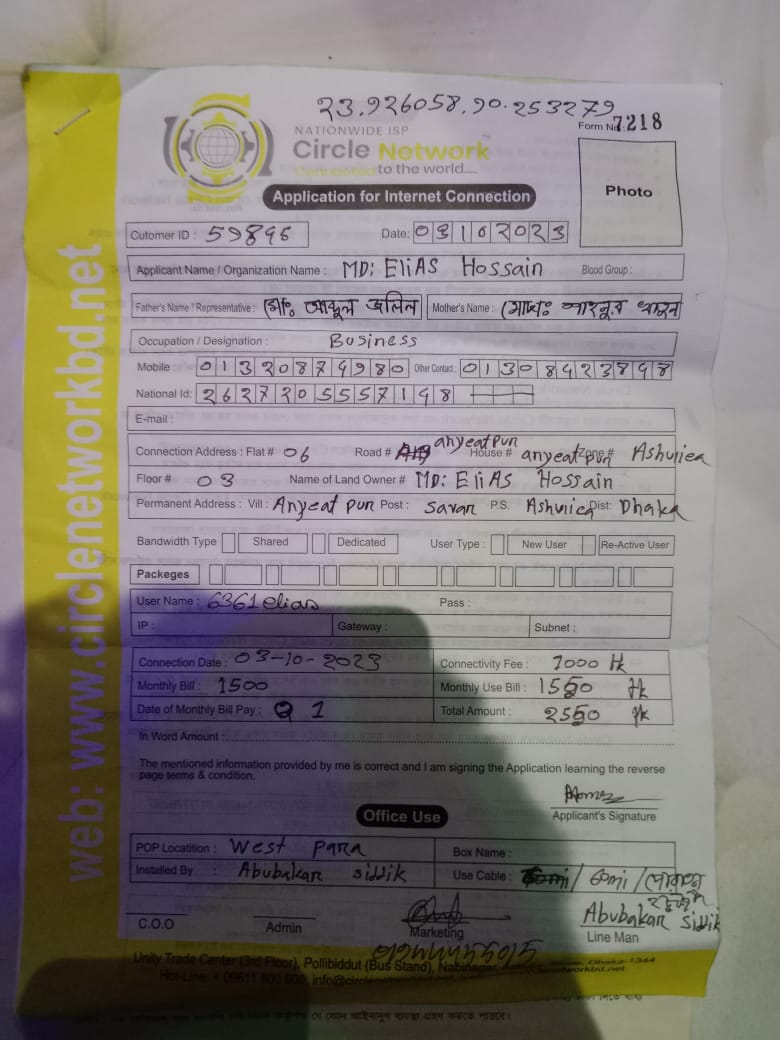 23.926058.90.253279
NATIONWIDE ISP
Form No: 7218
Circle Network
Connected to the world....
Application for Internet Connection
Photo
Cutomer ID : 59895
Date: 03102023
Applicant Name / Organization Name : MD: EliAS Hossain Blood Group :
Father's Name / Representative : মোঃ আব্দুল জলিল Mother's Name :
Occupation / Designation : Business
Mobile : 01320874980 Other Contact : 01308423848
National Id: 2627205557148
E-mail :
Connection Address : Flat # 06 Road # anyeatpur House # anyeatpur Zone # Ashuliea
Floor # 03 Name of Land Owner # MD: EliAS Hossain
Permanent Address : Vill : Anyeat pur Post : Savar P.S. Ashulica Dist: Dhaka
Bandwidth Type Shared Dedicated User Type : New User Re-Active User
Packeges
User Name : 6361elias Pass :
IP : Gateway : Subnet :
Connection Date : 03-10-2023 Connectivity Fee : 1000 tk
Monthly Bill : 1500 Monthly Use Bill : 1550 tk
Date of Monthly Bill Pay : 1 Total Amount : 2550 tk
In Word Amount :
The mentioned information provided by me is correct and I am signing the Application learning the reverse
page terms & condition.
Applicant's Signature
Office Use
POP Locatition : West para Box Name :
Installed By : Abubakar siddik Use Cable : 60mi /
Abubakar Siddik
C.O.O Admin Marketing Line Man
Unity Trade Center (3rd Floor), Pollibiddut (Bus Stand), Nabinagar, Dhaka-1344
Hot-Line: + 09611 800 900, info@circlenetworkbd.net
web: www.circlenetworkbd.net